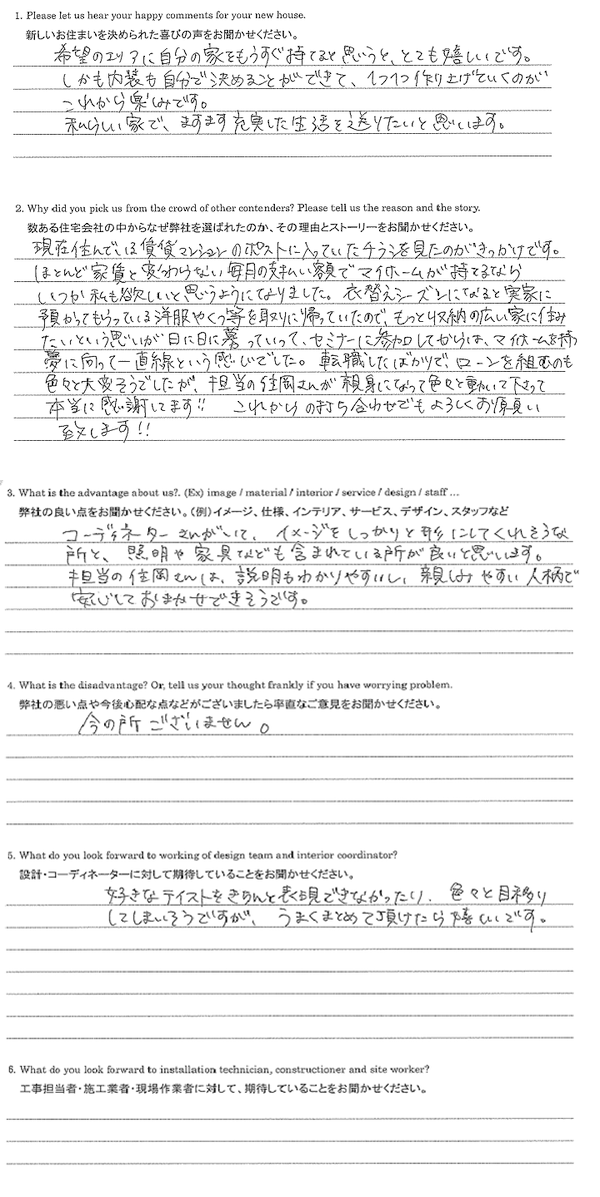 1. Please let us hear your happy comments for your new house.
新しいお住まいを決められた喜びの声をお聞かせください。
希望のエリアに自分の家をもうすぐ持てると思うと、とても嬉しいです。
しかも内装も自分で決めることができて、1つ1つ作り上げていくのが
これから楽しみです。
私らしい家で、ますます充実した生活を送りたいと思います。
2. Why did you pick us from the crowd of other contenders? Please tell us the reason and the story.
数ある住宅会社の中からなぜ弊社を選ばれたのか、その理由とストーリーをお聞かせください。
現在住んでいる賃貸マンションのポストに入っていたチラシを見たのがきっかけです。
ほとんど家賃と変わらない毎月の支払い額でマイホームが持てるなら
いつか私も欲しいと思うようになりました。衣替えシーズンになると実家に
預かってもらっている洋服やくつ等を取りに帰っていたので、もっと収納の広い家に住み
たいという思いが日に日に募っていって、セミナーに参加してからは、マイホームを持つ
夢に向って一直線という感じでした。転職したばかりで、ローンを組むのも
色々と大変そうでしたが、担当の住岡さんが親身になって色々と動いて下さって
本当に感謝してます!! これからの打ち合わせでもよろしくお願い
致します!!
3. What is the advantage about us?. (Ex) image / material / interior / service / design / staff ...
弊社の良い点をお聞かせください。(例)イメージ、仕様、インテリア、サービス、デザイン、スタッフなど
コーディネーターさんがいて、イメージをしっかりと形にしてくれそうな
所と、照明や家具なども含まれている所が良いと思います。
担当の住岡さんは、説明もわかりやすいし、親しみやすい人柄で
安心しておまかせできそうです。
4. What is the disadvantage? Or, tell us your thought frankly if you have worrying problem.
弊社の悪い点や今後心配な点などがございましたら率直なご意見をお聞かせください。
今の所ございません。
5. What do you look forward to working of design team and interior coordinator?
設計・コーディネーターに対して期待していることをお聞かせください。
好きなテイストをきちんと表現できなかったり、色々と目移り
してしまいそうですが、うまくまとめて頂けたら嬉しいです。
6. What do you look forward to installation technician, constructioner and site worker?
工事担当者・施工業者・現場作業者に対して、期待していることをお聞かせください。